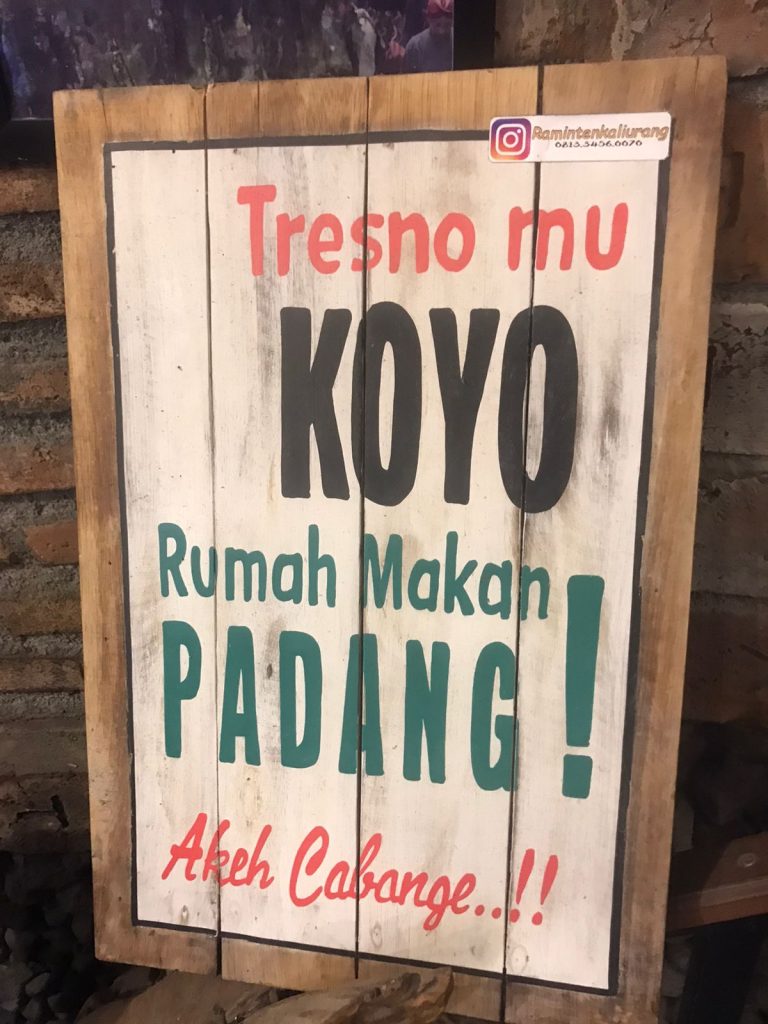 Ramintenkaliurang
0813.5456.6676
Tresno mu
KOYO
Rumah Makan
PADANG!
Akeh Cabange..!!